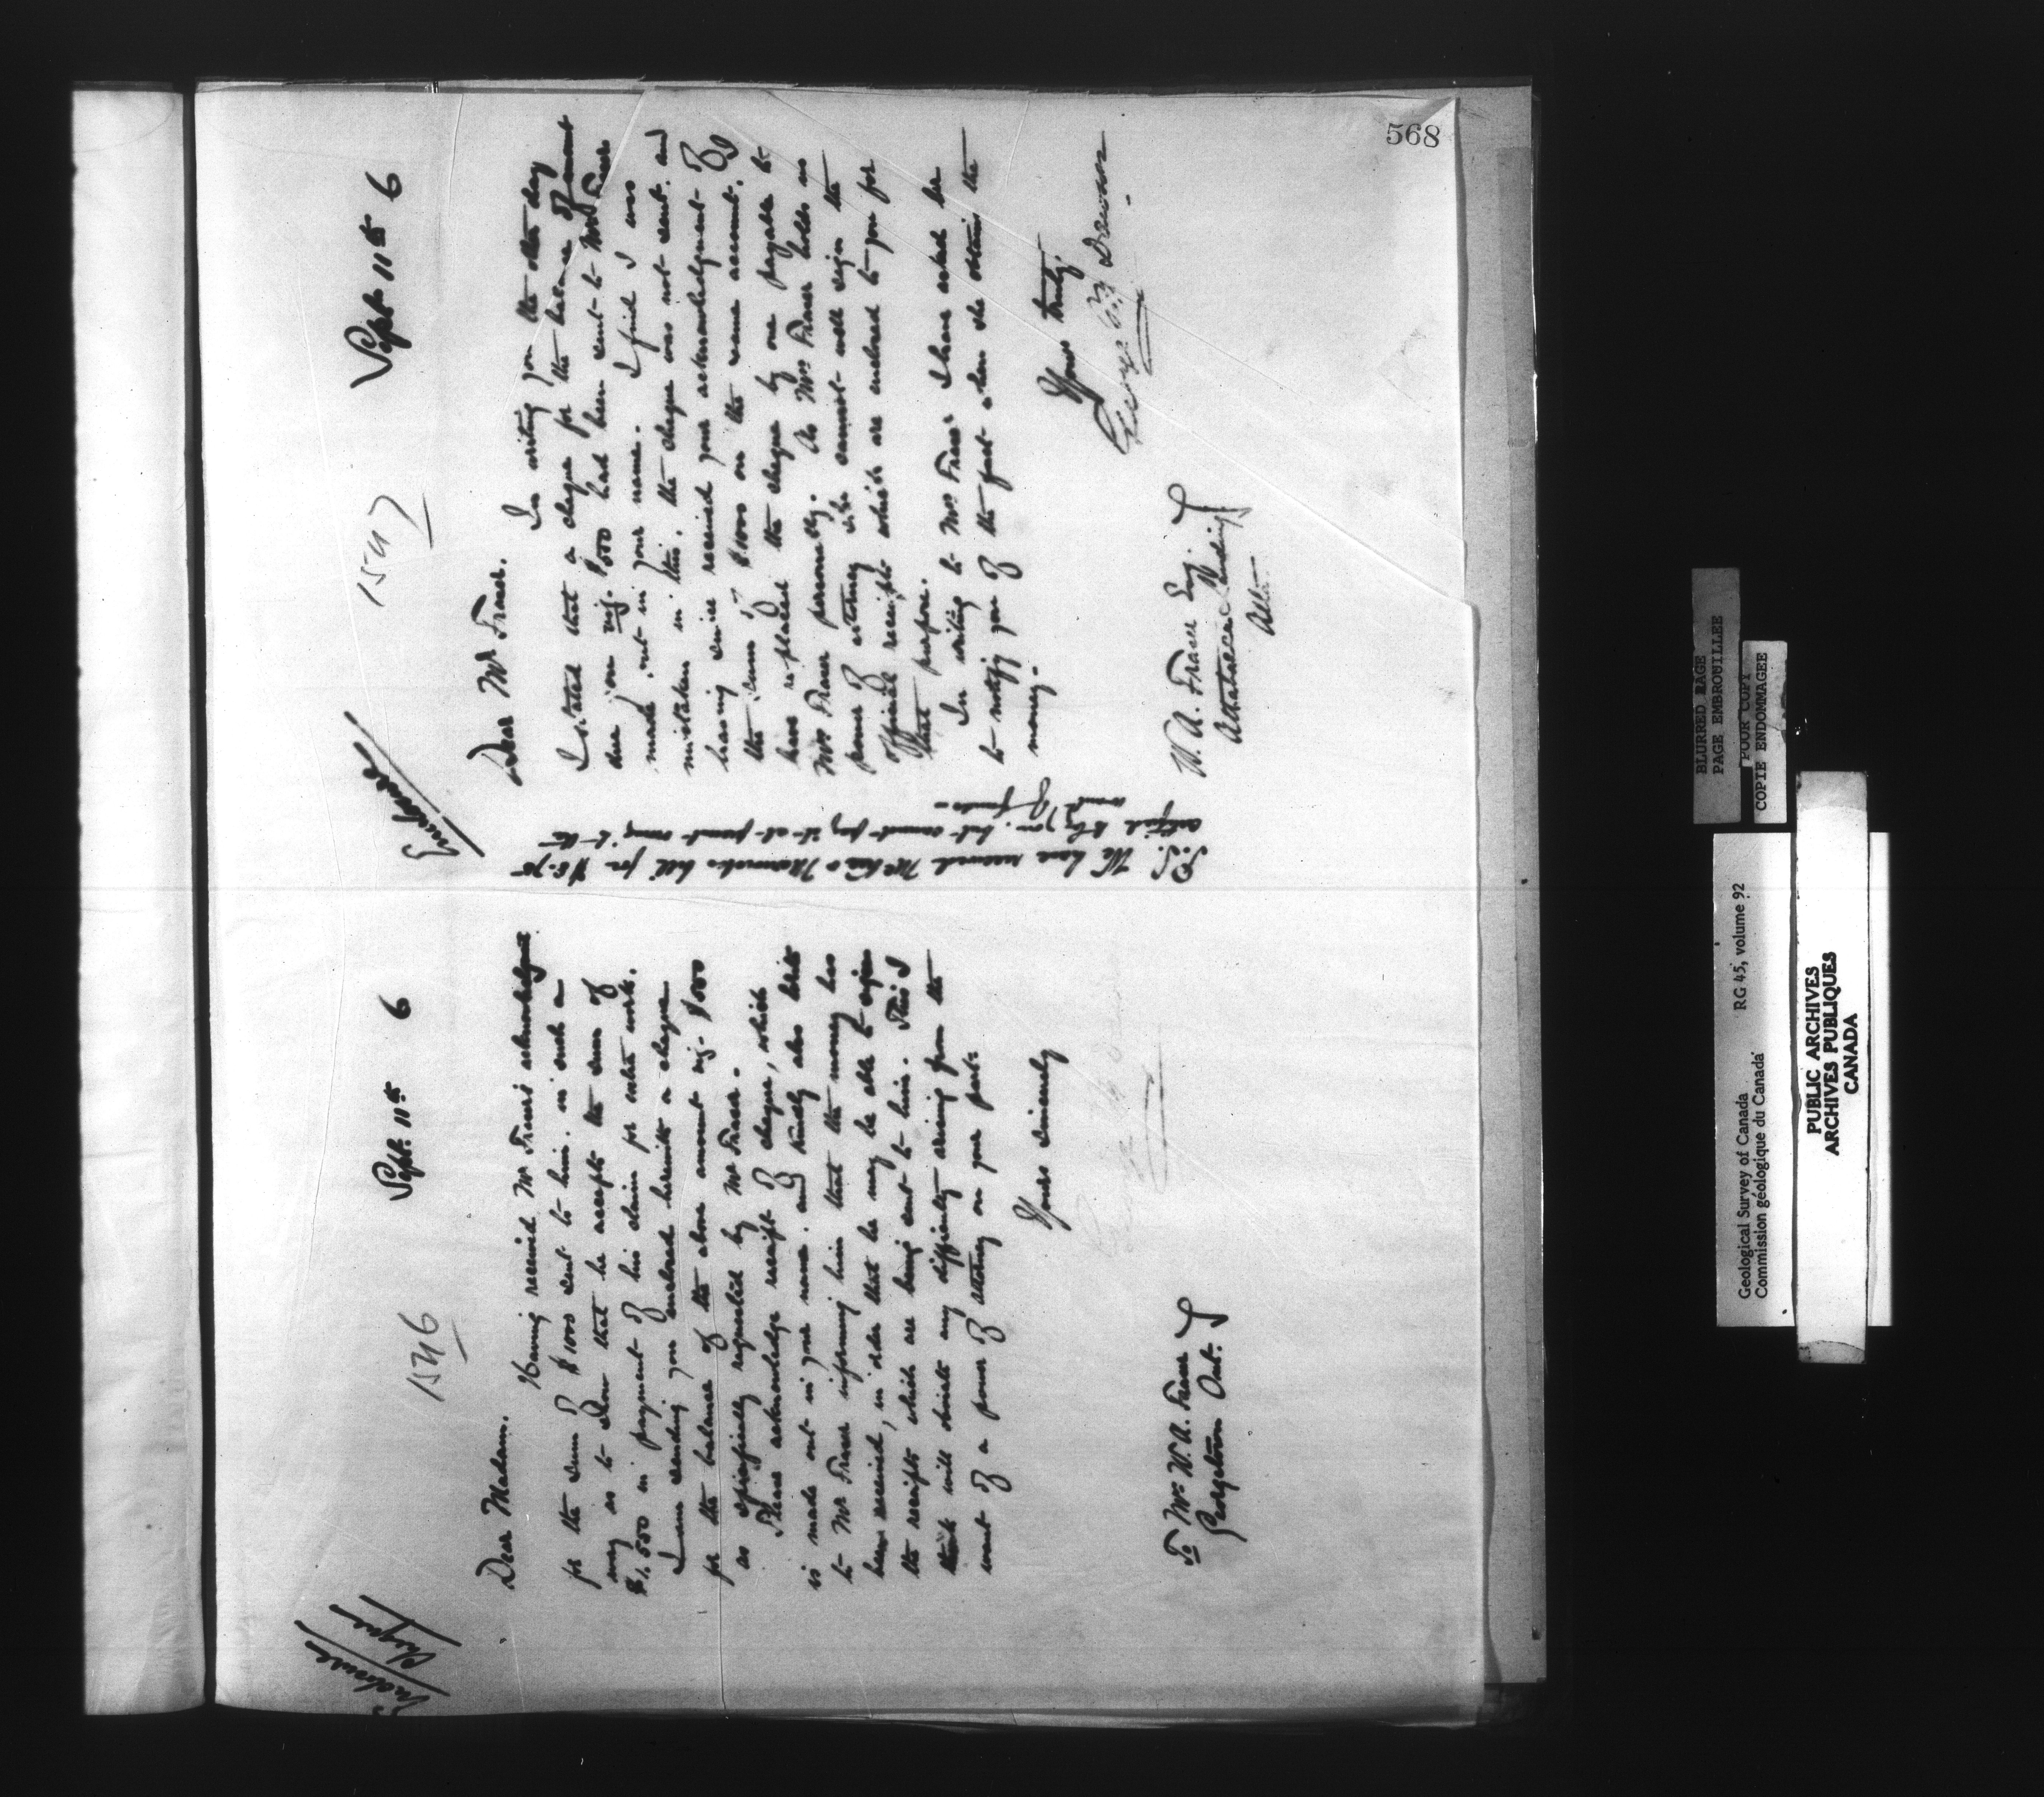 568
Enclosure
Cheque
1546
Sept. 11th 6
Dear Madam.
Having received Mr Fraser's acknowledgment
for the sum of $1000 sent to him. in such a
way as to show that he accepts the sum of
$1,500 in payment of his claim for extra work.
I am sending you enclosed herewith a cheque
for the balance of the above amount viz. $500
as specifically requested by Mr Fraser.
Please acknowledge receipt of cheque, which
is made out in your name. and kindly also write
to Mr Fraser informing him that the money has
been received, in order that he may be able to sign
the receipts which are being sent to him. This I
think will obviate any difficulty arising from the
want of a power of attorney on your part.
Yours sincerely
To Mrs W. A. Fraser
Georgetown Ont.
Enclosure
1547
Sept 11th 6
Dear Mr Fraser.
In writing you the other day
I stated that a cheque for the balance of amount
due you viz. $500 had been sent to Mrs Fraser
made out in your name. I find I was
mistaken in this. the cheque was not sent. and
having since received your acknowledgment of
the sum of $1000 on the same account. I
have replaced the cheque by one payable to
Mrs Fraser personally. As Mrs Fraser holds no
power of attorney she cannot well sign the
official receipts which are enclosed to you for
that purpose.
In writing to Mrs Fraser I have asked her
to notify you of the fact when she obtains the
money.
Yours truly.
George M Dawson
W. A. Fraser Esq.
Athabasca Landing
Alta.
P.S. We have received bill for
certified to by you. but cannot pay it at present owing to the
want of funds
BLURRED PAGE
PAGE EMBROUILLEE
POOR COPY
COPIE ENDOMMAGEE
Geological Survey of Canada RG 45, volume 92
Commission géologique du Canada
PUBLIC ARCHIVES
ARCHIVES PUBLIQUES
CANADA